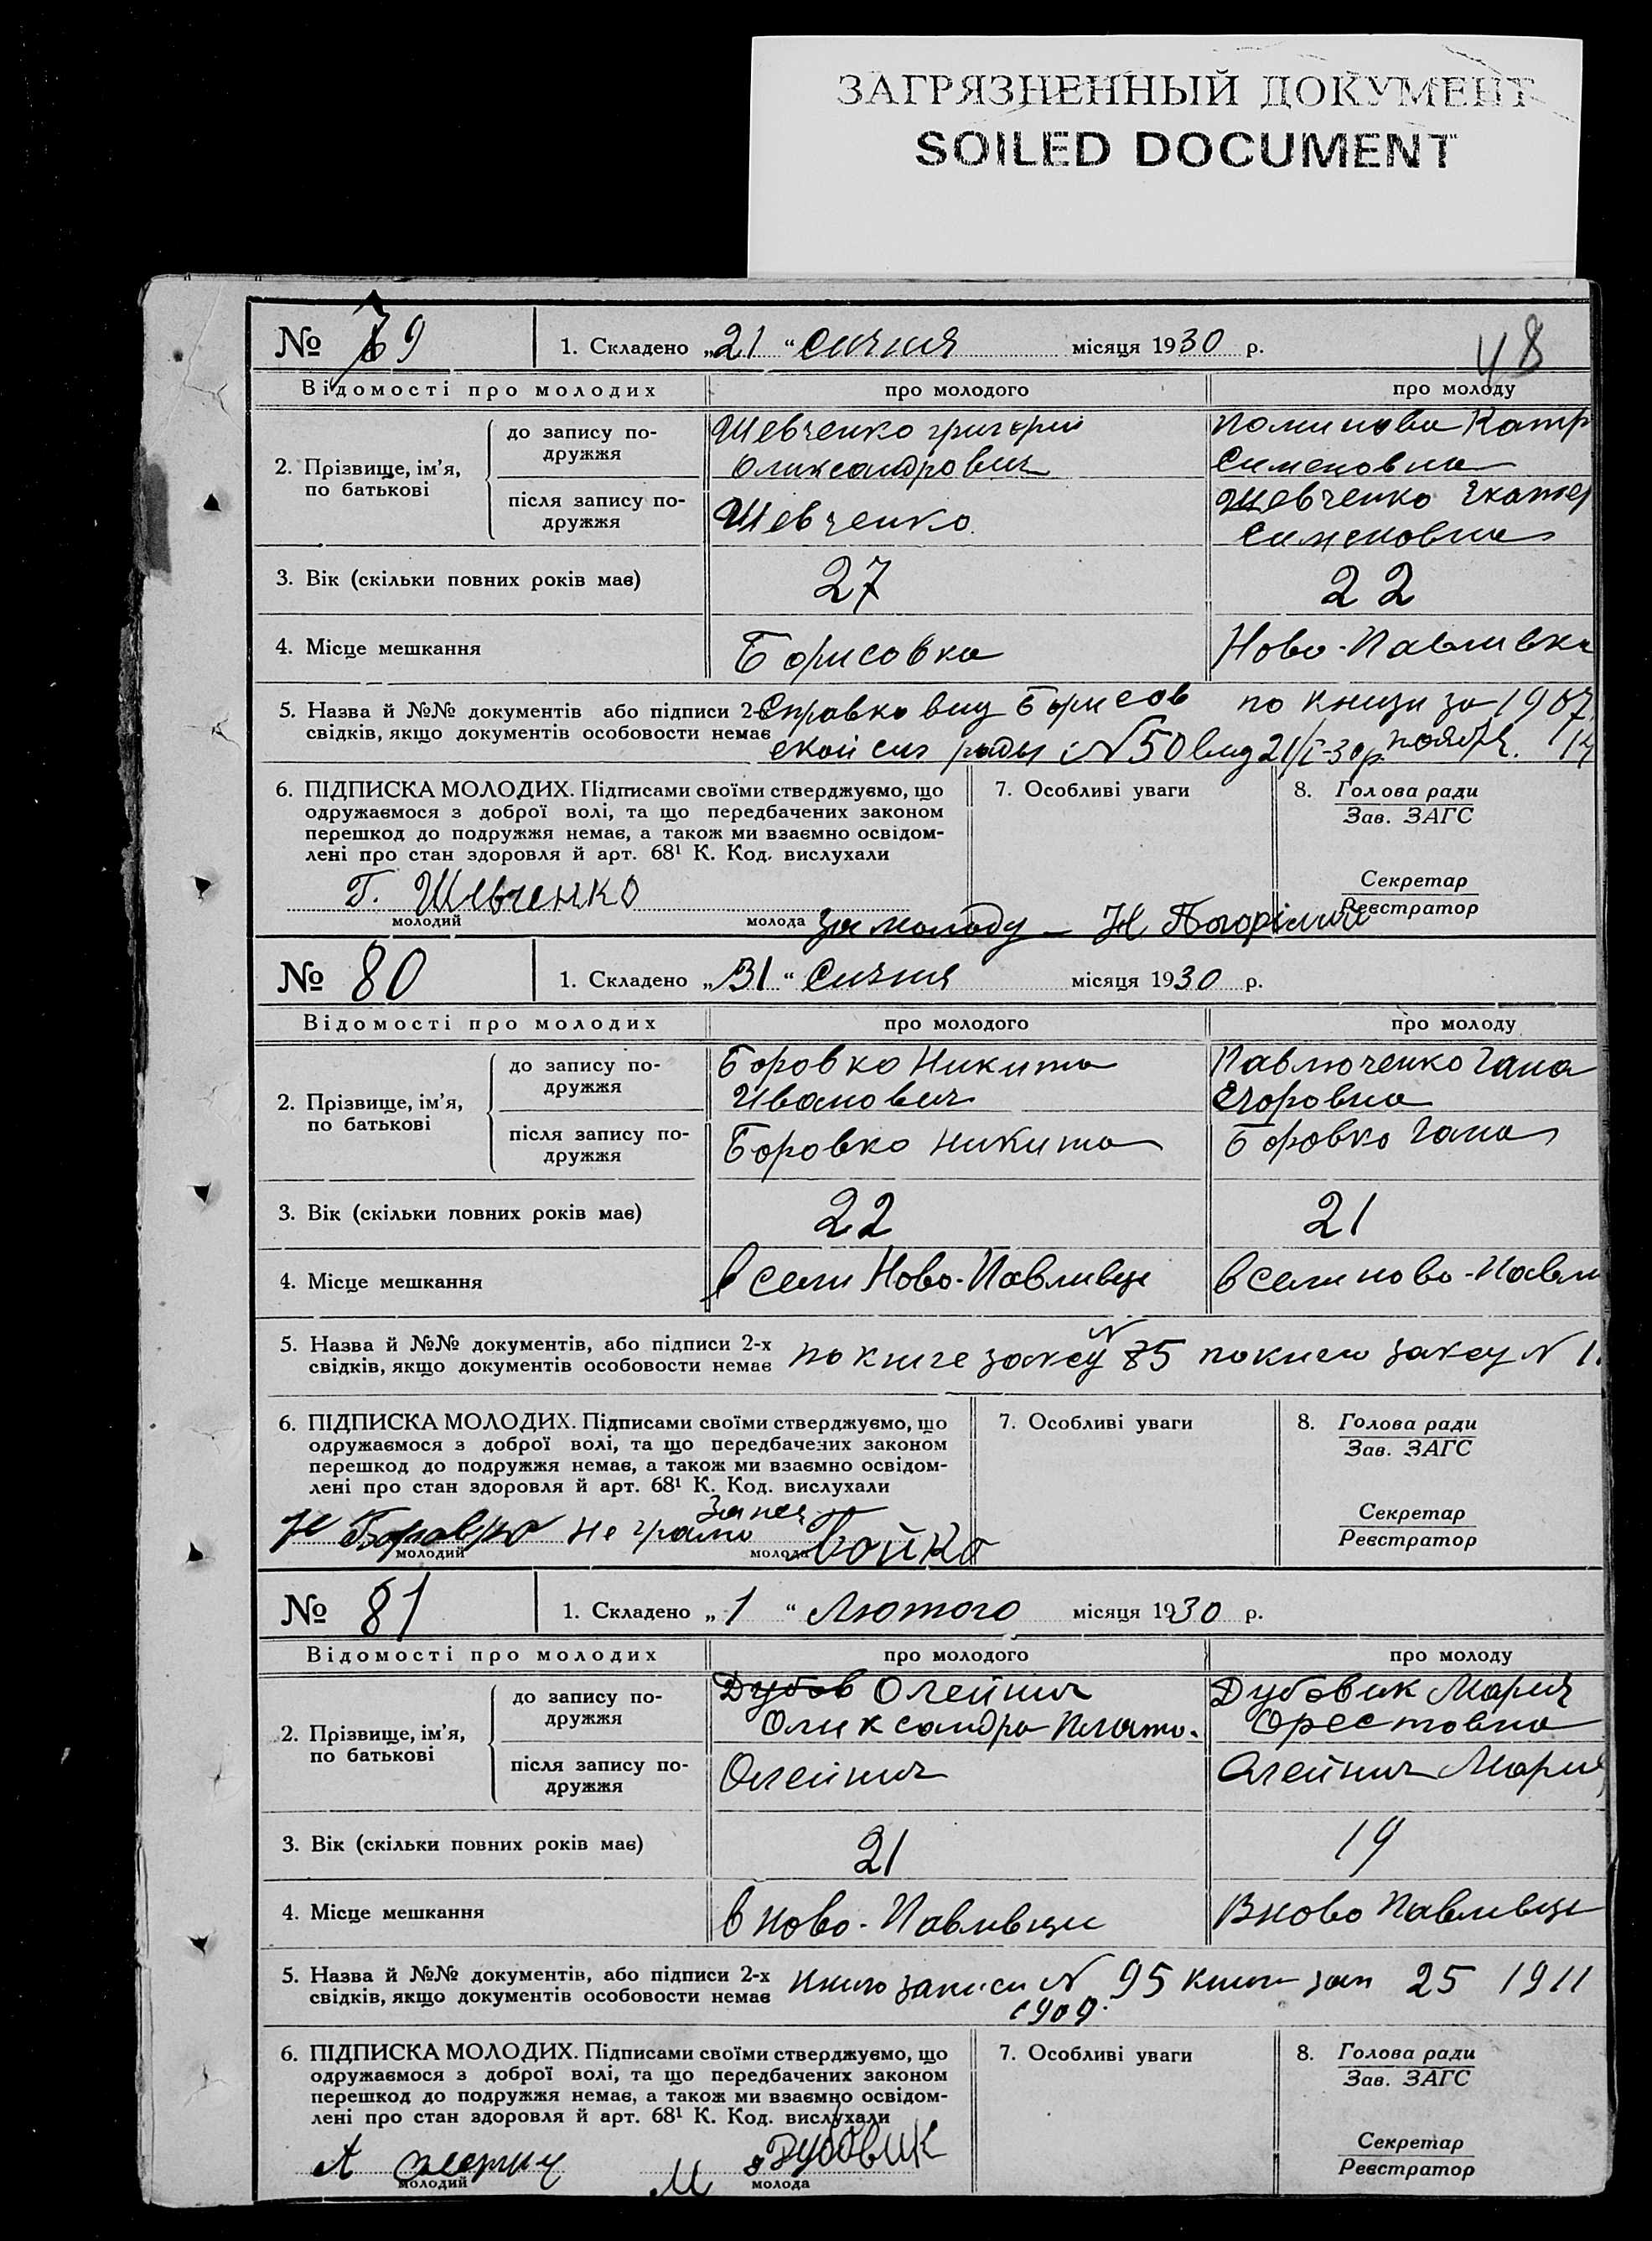 ЗАГРЯЗНЕННЫЙ ДОКУМЕНТ
SOILED DOCUMENT
48
№ 79 1. Складено „21“ Сичня місяця 1930 р.
Відомості про молодих про молодого про молоду
2. Прізвище, ім’я, по батькові
до запису подружжя
Шевченко Григорий
Олександрович
Катр
Сименовна
після запису подружжя
Шевченко
Шевченко Екатер
Сименовна
3. Вік (скільки повних років має) 27 22
4. Місце мешкання Борисовка Ново-Павливка
5. Назва й №№ документів або підписи 2-х Справка вид Борисов по книзи за 1907
свідків, якщо документів особовости немає ской сил ради N 50 вид 21/I-30р. ноября 14
6. ПІДПИСКА МОЛОДИХ. Підписами своїми стверджуємо, що 7. Особливі уваги 8. Голова ради
одружаємося з доброї волі, та що передбачених законом Зав. ЗАГС
перешкод до подружжя немає, а також ми взаємно освідом-
лені про стан здоровля й арт. 68¹ К. Код. вислухали
Секретар
Реєстратор
Г. Шевченко
молодий молода за молоду — Н
№ 80 1. Складено „31“ Сичня місяця 1930 р.
Відомості про молодих про молодого про молоду
2. Прізвище, ім’я, по батькові
до запису подружжя
Боровко Никита
Иванович
Павлюченко Гана
Егоровна
після запису подружжя
Боровко Никита
Боровко Гана
3. Вік (скільки повних років має) 22 21
4. Місце мешкання в сели Ново-Павливце в сели Ново-Павли
5. Назва й №№ документів, або підписи 2-х
свідків, якщо документів особовости немає по книге загсу N 85 по книги загсу N 1
6. ПІДПИСКА МОЛОДИХ. Підписами своїми стверджуємо, що 7. Особливі уваги 8. Голова ради
одружаємося з доброї волі, та що передбачених законом Зав. ЗАГС
перешкод до подружжя немає, а також ми взаємно освідом-
лені про стан здоровля й арт. 68¹ К. Код. вислухали
Секретар
Реєстратор
Н Боровко не грамо за нея Бойко
молодий молода
№ 81 1. Складено „1“ Лютого місяця 1930 р.
Відомості про молодих про молодого про молоду
2. Прізвище, ім’я, по батькові
до запису подружжя
Дубов Олейник
Олександра Плато.
Дубовик Мария
Орестовна
після запису подружжя
Олейник
Олейник Мария
3. Вік (скільки повних років має) 21 19
4. Місце мешкання в Ново-Павливци В Ново Павливце
5. Назва й №№ документів, або підписи 2-х
свідків, якщо документів особовости немає книга записи N 95 книги зап 25 1911
1909.
6. ПІДПИСКА МОЛОДИХ. Підписами своїми стверджуємо, що 7. Особливі уваги 8. Голова ради
одружаємося з доброї волі, та що передбачених законом Зав. ЗАГС
перешкод до подружжя немає, а також ми взаємно освідом-
лені про стан здоровля й арт. 68¹ К. Код. вислухали
Секретар
Реєстратор
А М Дубовик
молодий молода